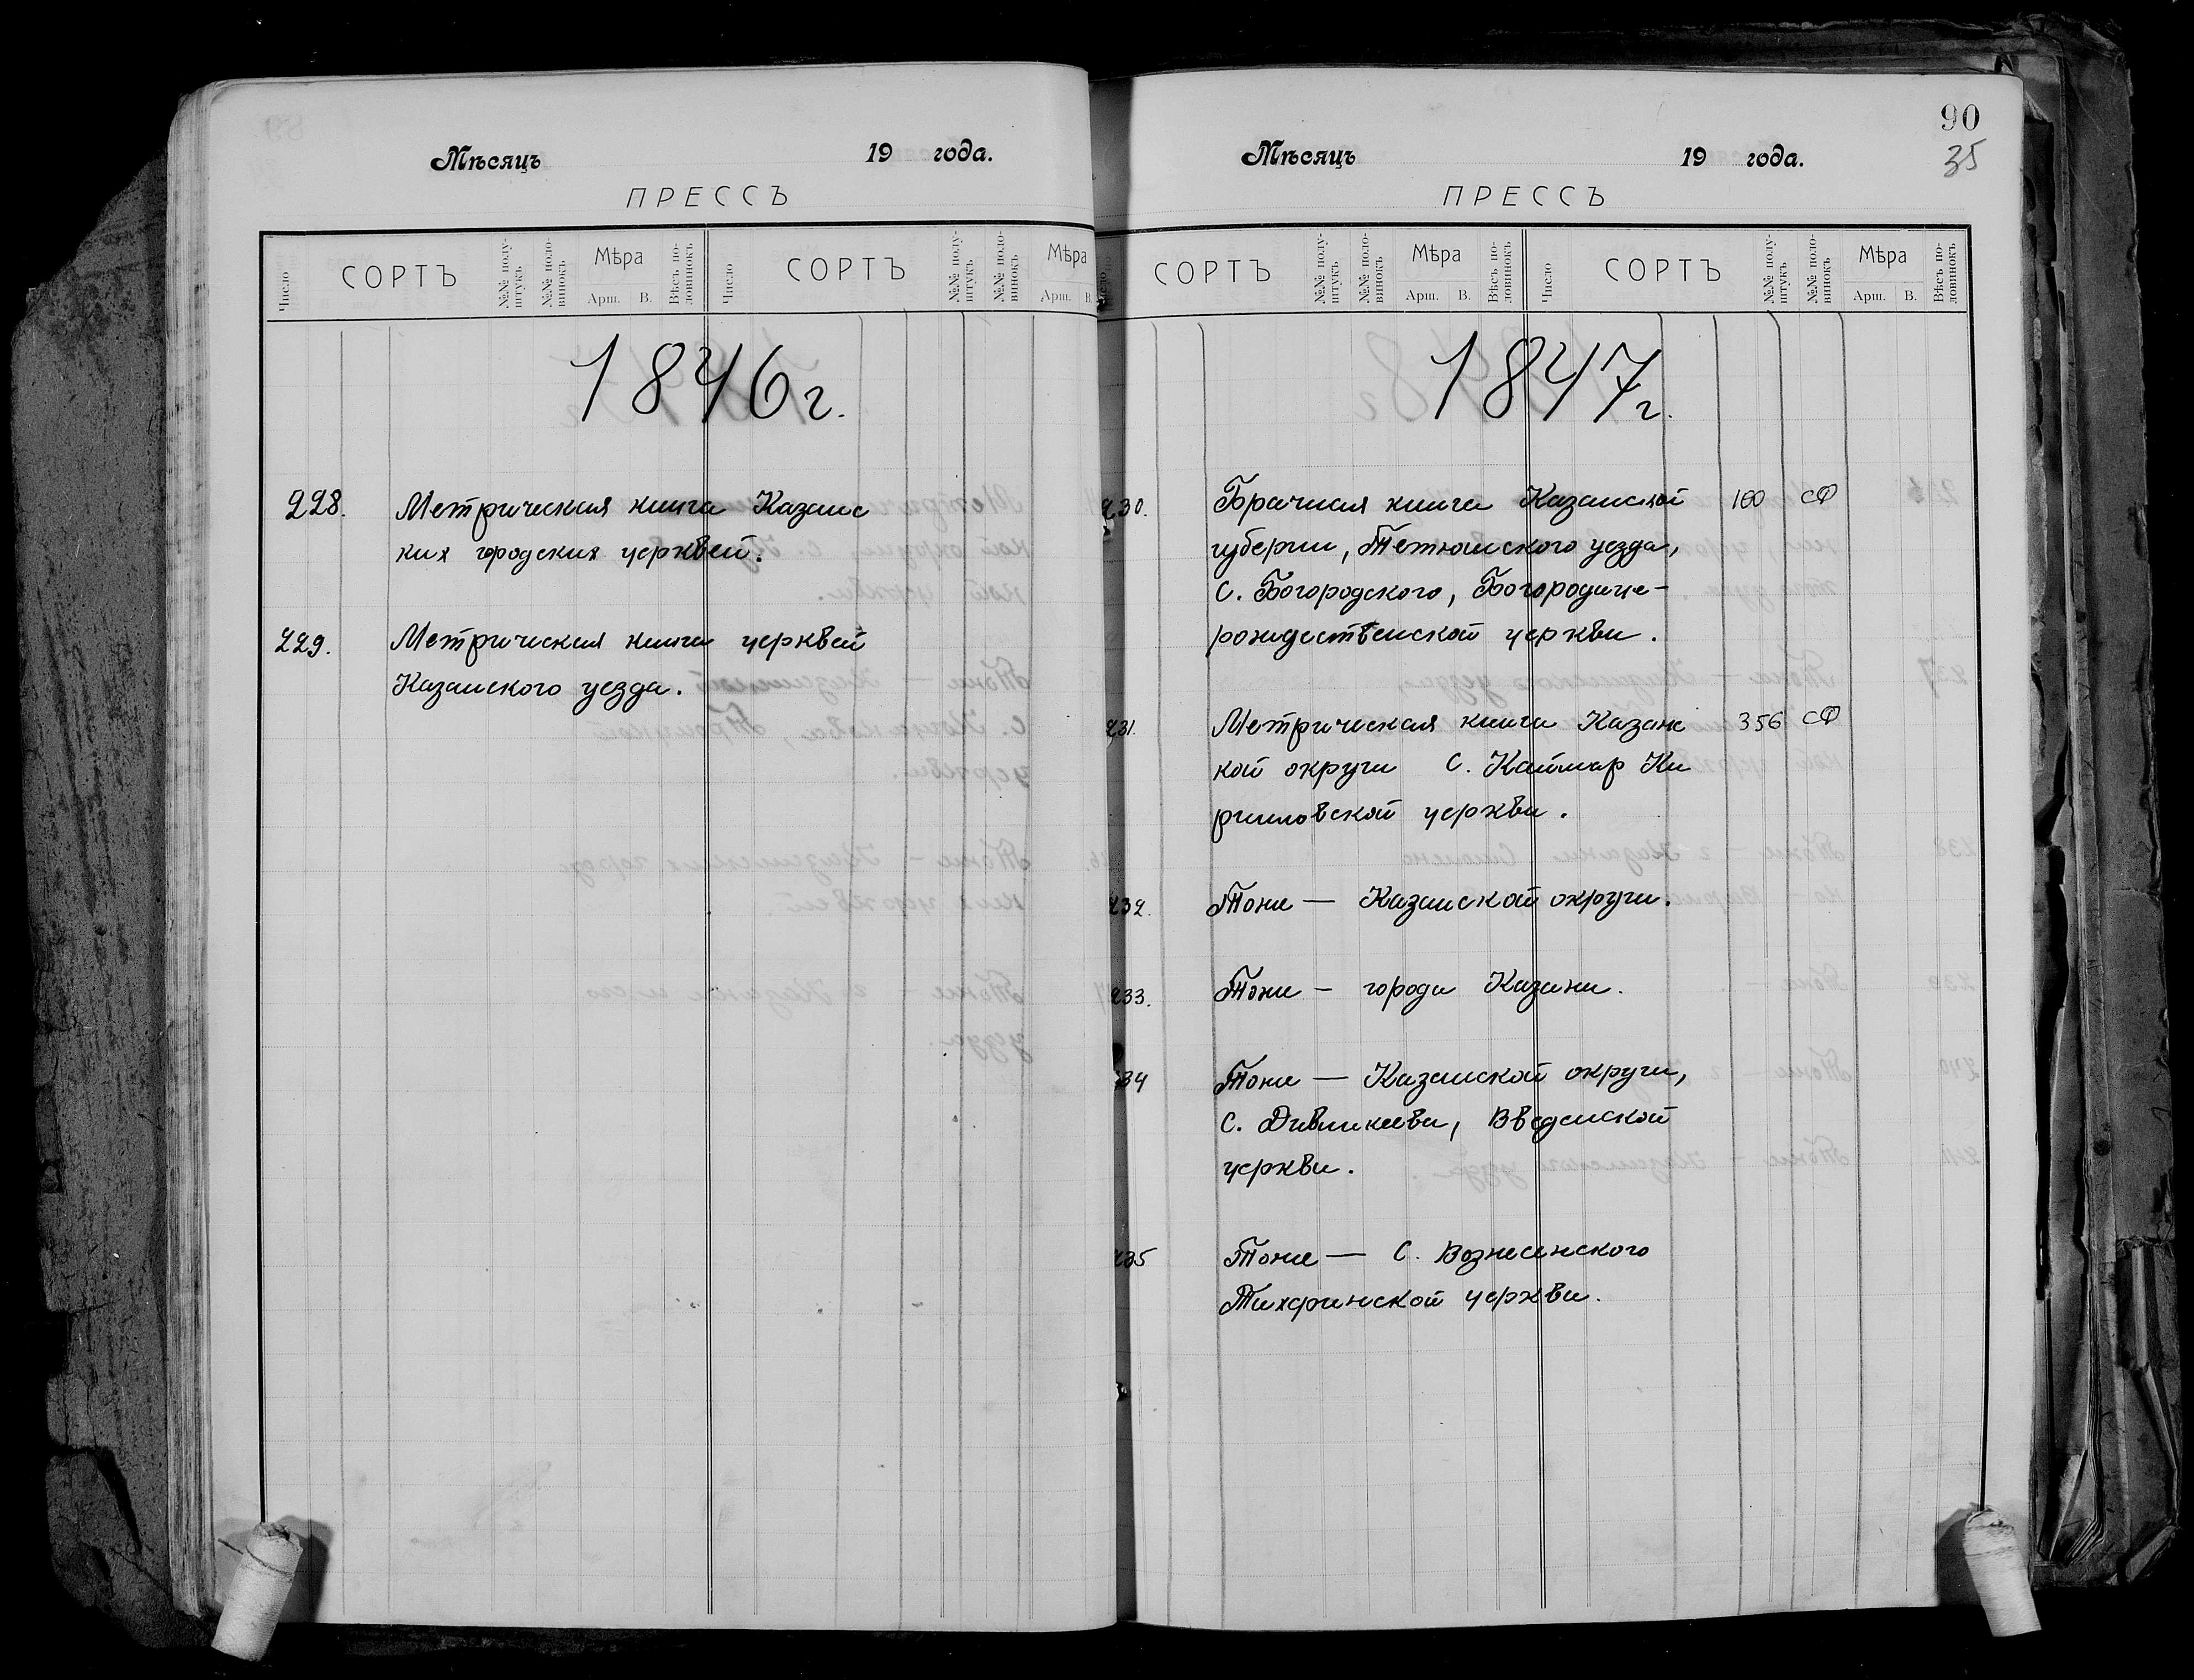 Мѣсяцъ 19 года.
ПРЕССЪ
Число СОРТЪ №№ полу-штукъ №№ поло-винокъ Мѣра Арш. В. Вѣсъ по-ловинокъ Число СОРТЪ №№ полу-штукъ №№ поло-винокъ Мѣра Арш. В.
1846 г.
228. Метрическая книга Казанс
ких городских церквей.
229. Метрическая книга церквей
Казанского уезда.
90
35
Мѣсяцъ 19 года.
ПРЕССЪ
СОРТЪ №№ полу-штукъ №№ поло-винокъ Мѣра Арш. В. Вѣсъ по-ловинокъ Число СОРТЪ №№ полу-штукъ №№ поло-винокъ Мѣра Арш. В. Вѣсъ по-ловинокъ
1847 г.
230. Брачная книга Казанской 160 СФ
губернии, Тетюшского уезда,
С. Богородского, Богородице-
рождественской церкви.
231. Метрическая книга Казанс 356 СФ
кой округи С. Каймар Ки
рилловской церкви.
232. Тоже — Казанской округи.
233. Тоже — города Казани.
234 Тоже — Казанской округи,
С. Девликеева, Введенской
церкви.
235 Тоже — С. Вознесенского
Тихвинской церкви.